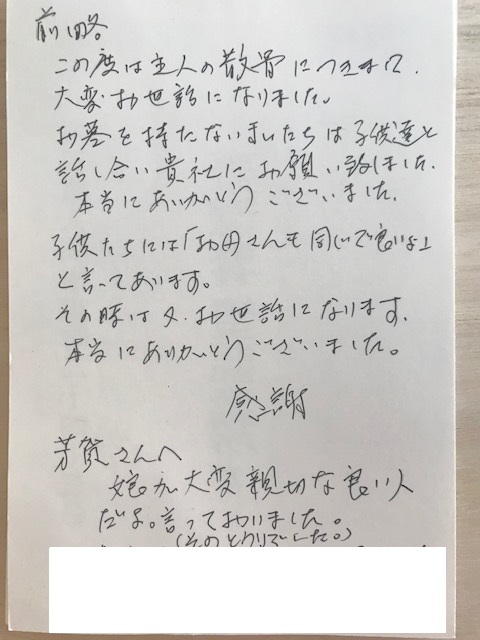 前略
この度は主人の散骨につきまして、
大変お世話になりました。
お墓を持たない私たちは子供達と
話し合い貴社にお願い致しました。
本当にありがとうございました。
子供たちには「お母さんも同じで良いよ」
と言ってあります。
その時は又、お世話になります。
本当にありがとうございました。
感謝
芳賀さんへ
娘が大変親切な良い人
だよ。言っておりました。
(そのとうりでした。)